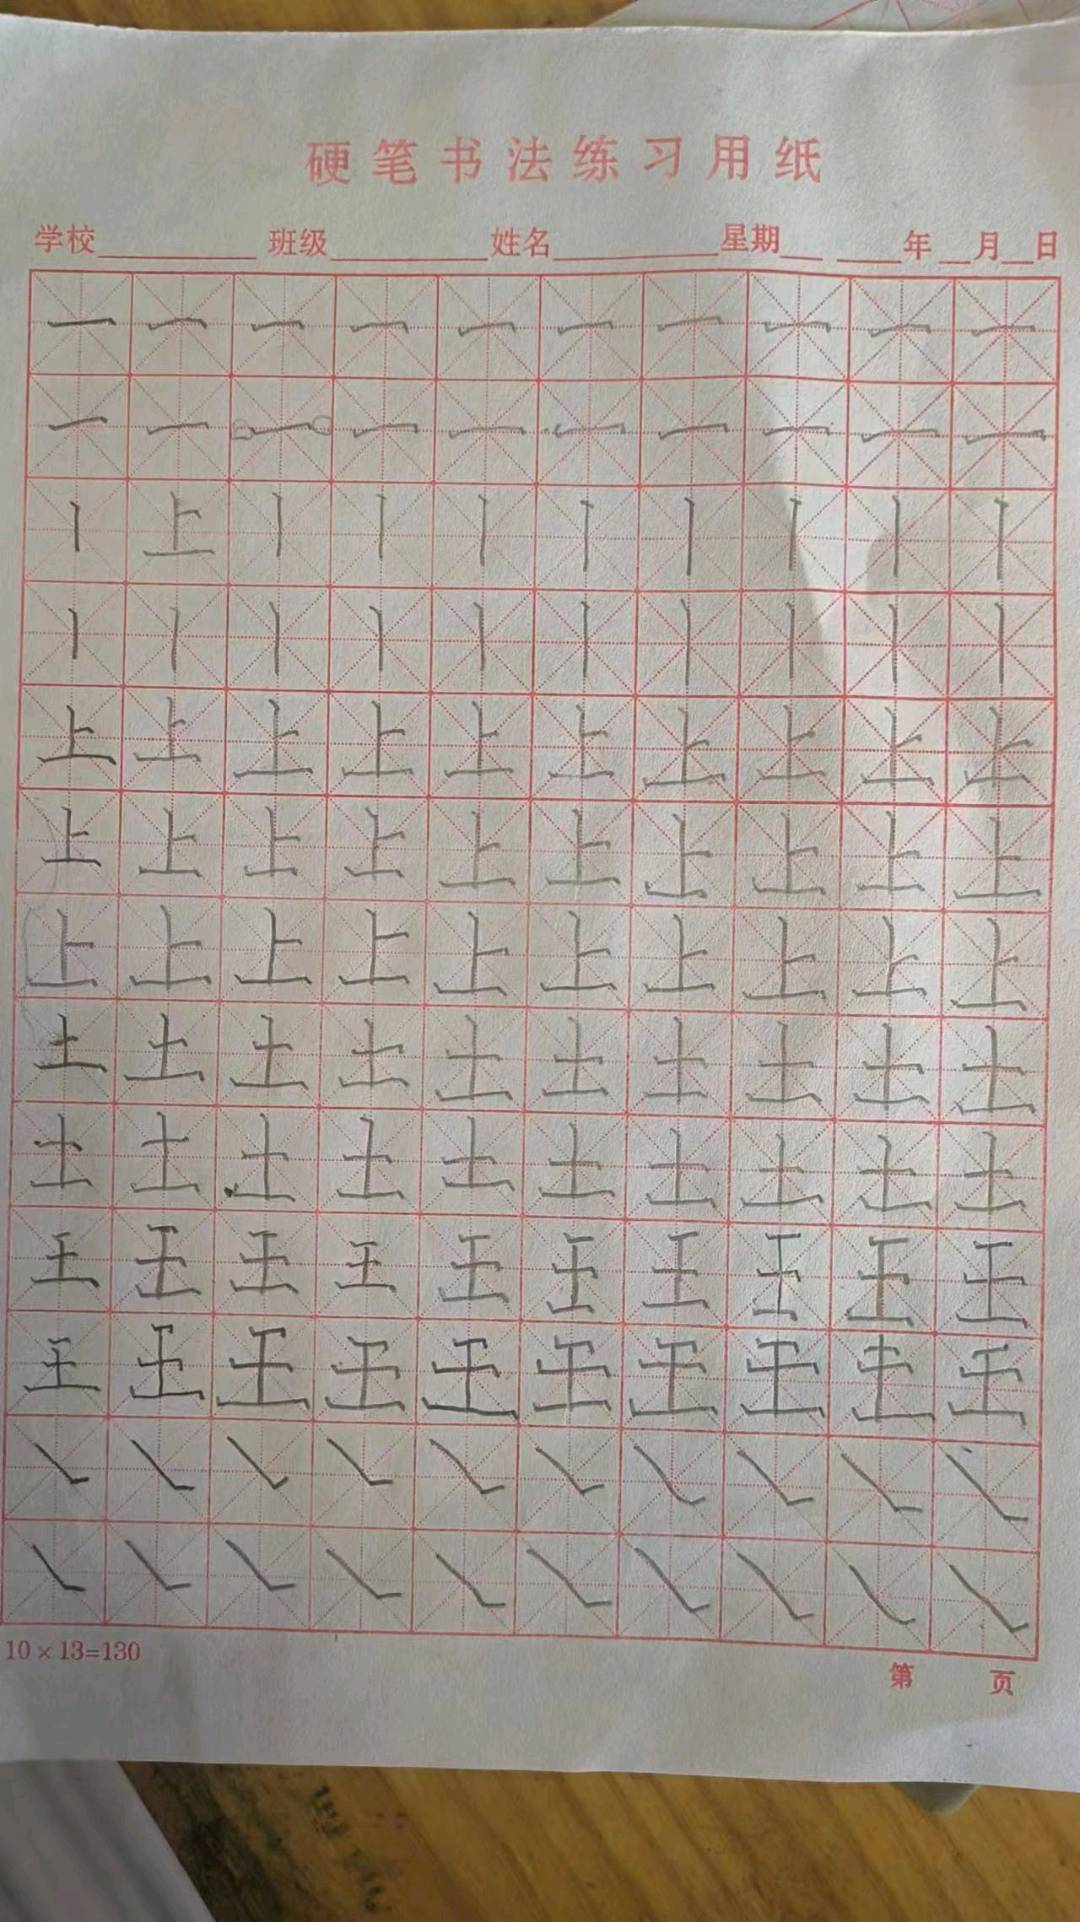 硬笔书法练习用纸
学校 班级 姓名 星期 年 月 日
一 一 一 一 一 一 一 一 一 一
一 一 一 一 一 一 一 一 一 一
丨 上 丨 丨 丨 丨 丨 丨 丨 丨
丨 丨 丨 丨 丨 丨 丨 丨 丨 丨
上 上 上 上 上 上 上 上 上 上
上 上 上 上 上 上 上 上 上 上
上 上 上 上 上 上 上 上 上 上
土 土 土 土 土 土 土 土 土 土
土 土 土 土 土 土 土 土 土 土
王 王 王 王 王 王 王 王 王 王
王 王 王 王 王 王 王 王 王 王
㇏ ㇏ ㇏ ㇏ ㇏ ㇏ ㇏ ㇏ ㇏ ㇏
㇏ ㇏ ㇏ ㇏ ㇏ ㇏ ㇏ ㇏ ㇏ ㇏
10×13=130
第 页